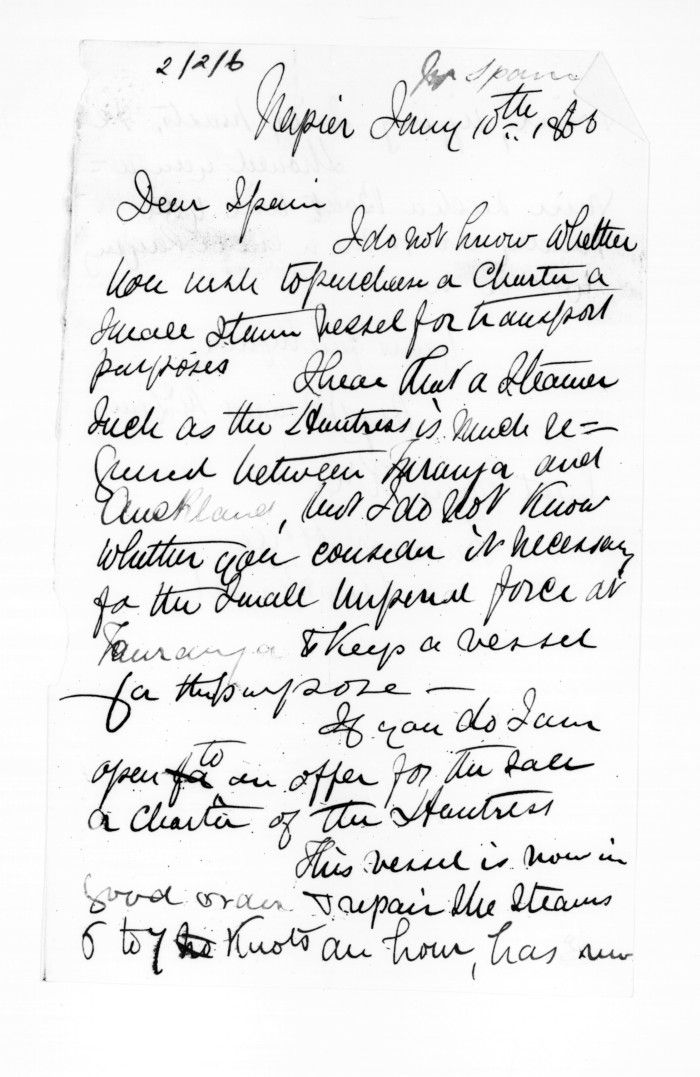 2/2/6
Mr Spain
Napier Jany 10th 1866
Dear Spain
I do not know whether
you wish to purchase or Charter a
Small Steam Vessel for transport
purposes I hear that a Steamer
Such as the Huntress is much re=
quired between Turanga and
Auckland, but I do not know
whether you consider it necessary
for the Small Imperial force at
Tauranga to keep a vessel
for the purpose —
If you do I am
open to an offer for the sale
or Charter of the Huntress
This vessel is now in
good order & repair She Steams
6 to 7 Knots an hour, has new